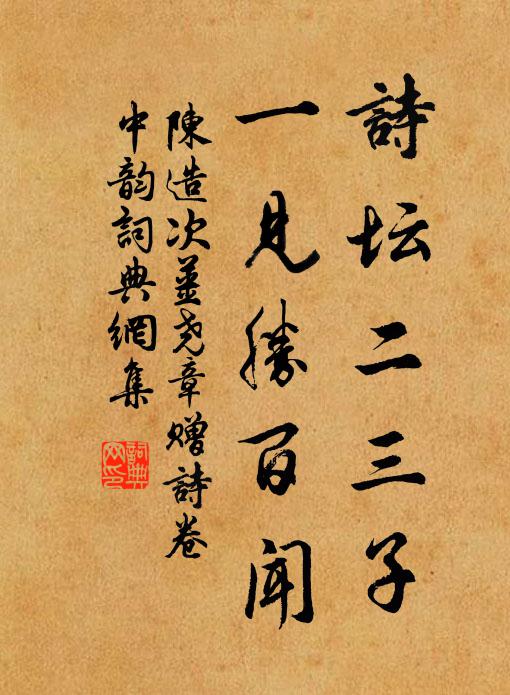 詩坛二三子
一見勝百聞
陳造次姜尧章贈詩卷中韵詞典網集
詞典网印